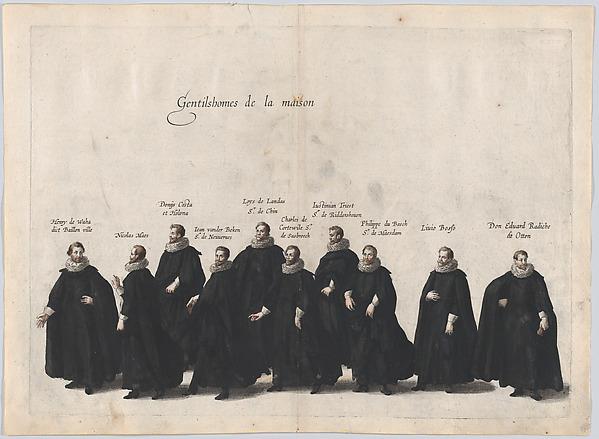 Gentilshomes de la maison
Henry de Waha
dict Baillen ville
Nicolas Maes
Donijs Costa
et Holona
Iean vander Beken
Sr. de Neuuernes
Loys de Landas
Sr. de Chin
Charles de
Cortewile Sr.
de Suebreech
Iustinian Triest
Sr. de Ridderhouen
Philippe du Bosch
Sr. de Maesdam
Liuio Bosso
Don Eduard Radiche
de Otton